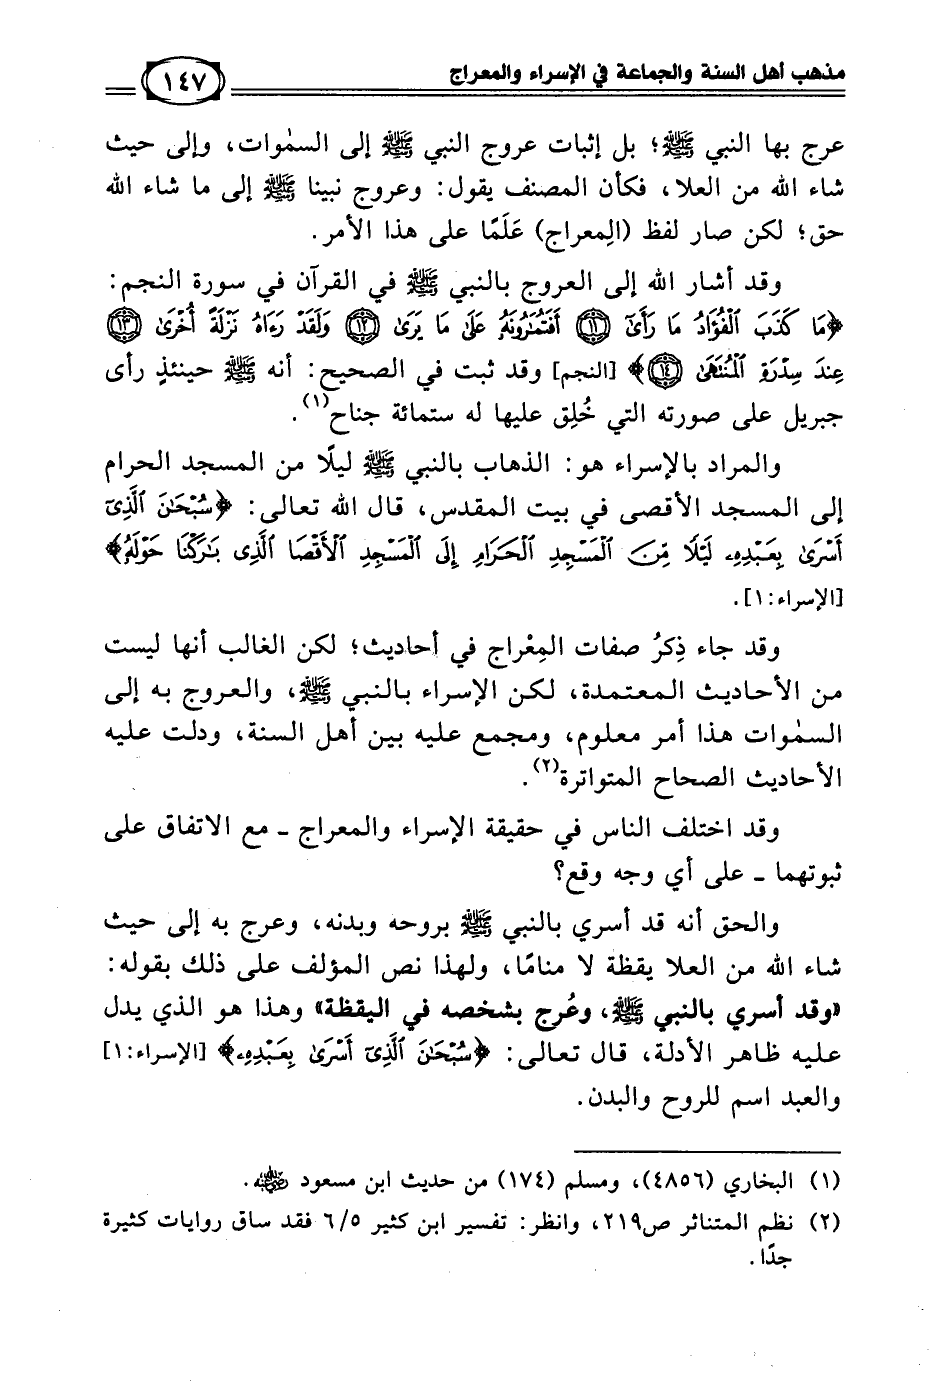 مذهب أهل السنة والجماعة في الإسراء والمعراج
١٤٧
عرج بها النبي ﷺ؛ بل إثبات عروج النبي ﷺ إلى السمٰوات، وإلى حيث
شاء الله من العلا، فكأن المصنف يقول: وعروج نبينا ﷺ إلى ما شاء الله
حق؛ لكن صار لفظ (المِعراج) عَلَمًا على هذا الأمر.
وقد أشار الله إلى العروج بالنبي ﷺ في القرآن في سورة النجم:
﴿مَا كَذَبَ ٱلْفُؤَادُ مَا رَأَىٰٓ ۝١١ أَفَتُمَٰرُونَهُۥ عَلَىٰ مَا يَرَىٰ ۝١٢ وَلَقَدْ رَءَاهُ نَزْلَةً أُخْرَىٰ ۝١٣
عِندَ سِدْرَةِ ٱلْمُنتَهَىٰ ۝١٤﴾ [النجم] وقد ثبت في الصحيح: أنه ﷺ حينئذٍ رأى
جبريل على صورته التي خُلِق عليها له ستمائة جناح(١).
والمراد بالإسراء هو: الذهاب بالنبي ﷺ ليلًا من المسجد الحرام
إلى المسجد الأقصى في بيت المقدس، قال الله تعالى: ﴿سُبْحَٰنَ ٱلَّذِىٓ
أَسْرَىٰ بِعَبْدِهِۦ لَيْلًا مِّنَ ٱلْمَسْجِدِ ٱلْحَرَامِ إِلَى ٱلْمَسْجِدِ ٱلْأَقْصَا ٱلَّذِى بَٰرَكْنَا حَوْلَهُۥ﴾
[الإسراء:١].
وقد جاء ذِكرُ صفات المِعْراج في أحاديث؛ لكن الغالب أنها ليست
من الأحاديث المعتمدة، لكن الإسراء بالنبي ﷺ، والعروج به إلى
السمٰوات هذا أمر معلوم، ومجمع عليه بين أهل السنة، ودلت عليه
الأحاديث الصحاح المتواترة(٢).
وقد اختلف الناس في حقيقة الإسراء والمعراج ـ مع الاتفاق على
ثبوتهما ـ على أي وجه وقع؟
والحق أنه قد أسري بالنبي ﷺ بروحه وبدنه، وعرج به إلى حيث
شاء الله من العلا يقظة لا منامًا، ولهذا نص المؤلف على ذلك بقوله:
«وقد أسري بالنبي ﷺ، وعُرج بشخصه في اليقظة» وهذا هو الذي يدل
عليه ظاهر الأدلة، قال تعالى: ﴿سُبْحَٰنَ ٱلَّذِىٓ أَسْرَىٰ بِعَبْدِهِۦ﴾ [الإسراء:١]
والعبد اسم للروح والبدن.
(١) البخاري (٤٨٥٦)، ومسلم (١٧٤) من حديث ابن مسعود رضي الله عنه.
(٢) نظم المتناثر ص٢١٩، وانظر: تفسير ابن كثير ٦/٥ فقد ساق روايات كثيرة
جدًا.